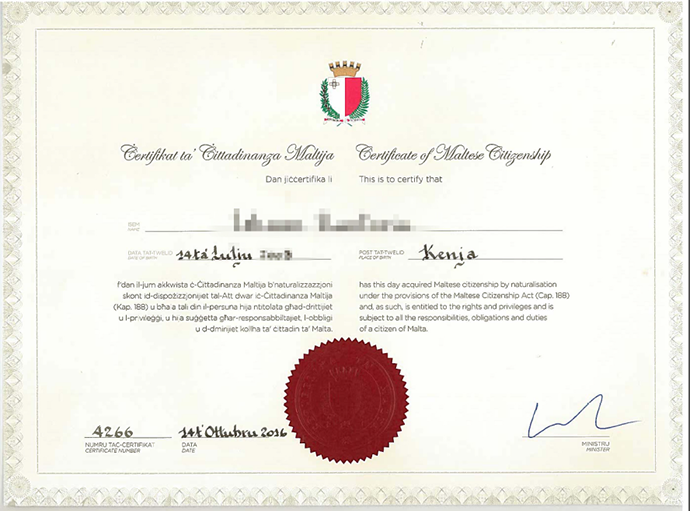 Ċertifikat ta' Ċittadinanza Maltija
Dan jiċċertifika li
Certificate of Maltese Citizenship
This is to certify that
ISEM
NAME
DATA TAT-TWELID
DATE OF BIRTH
14 ta' Lulju
POST TAT-TWELID
PLACE OF BIRTH
Kenja
f'dan il-jum akkwista ċ-Ċittadinanza Maltija b'naturalizzazzjoni
skont id-dispożizzjonijiet tal-Att dwar iċ-Ċittadinanza Maltija
(Kap. 188) u bħa a tali din il-persuna hija ntitolata għad-drittijiet
u l-privileġġi, u hi a suġġetta għar-responsabbiltajiet, l-obbligi
u d-dmirijiet kollha ta' ċittadin ta' Malta.
has this day acquired Maltese citizenship by naturalisation
under the provisions of the Maltese Citizenship Act (Cap. 188)
and, as such, is entitled to the rights and privileges and is
subject to all the responsibilities, obligations and duties
of a citizen of Malta.
4266
NUMRU TAĊ-ĊERTIFIKAT
CERTIFICATE NUMBER
14 t' Ottubru 2016
DATA
DATE
MINISTRU
MINISTER